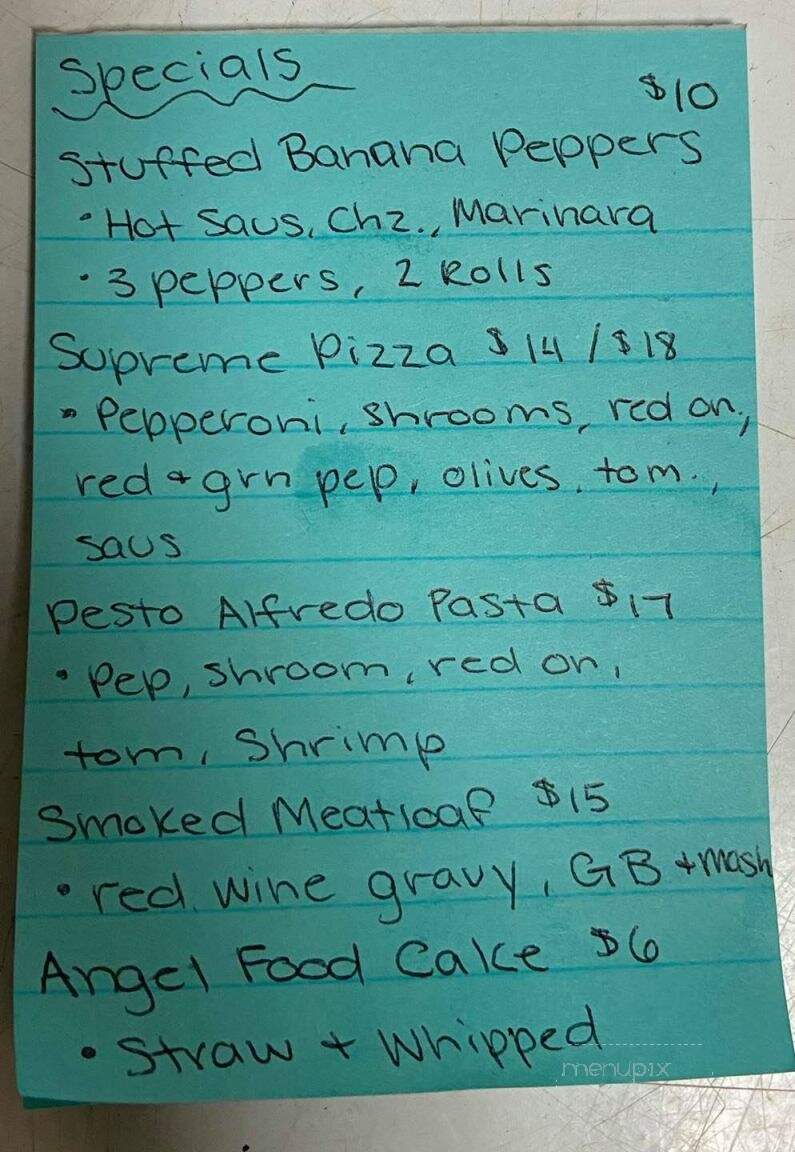 Specials
$10
Stuffed Banana Peppers
• Hot Saus, Chz., Marinara
• 3 peppers, 2 Rolls
Supreme Pizza $14 / $18
• Pepperoni, shrooms, red on.,
red + grn pep, olives, tom.,
saus
Pesto Alfredo Pasta $17
• Pep, shroom, red on,
tom, Shrimp
Smoked Meatloaf $15
• red wine gravy, GB + mash
Angel Food Cake $6
• Straw + Whipped
menupix